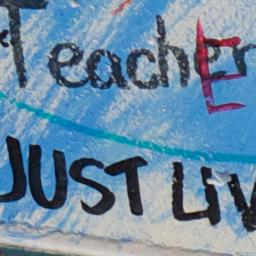 Teacher
JUST LIV